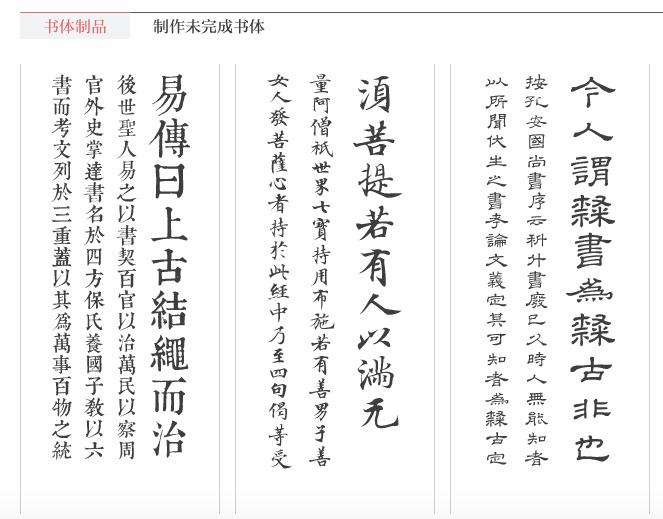 书体制品
制作未完成书体
易傳曰上古結繩而治
後世聖人易之以書契百官以治萬民以察周
官外史掌達書名於四方保氏養國子敎以六
書而考文列於三重蓋以其爲萬事百物之統
須菩提若有人以滿无
量阿僧祇世界七寶持用布施若有善男子善
女人發菩薩心者持於此經中乃至四句偈等受
今人謂隸書為隸古非也
按孔安國尚書序云科斗書廢已久時人無能知者
以所聞伏生之書考論文義定其可知者為隸古定